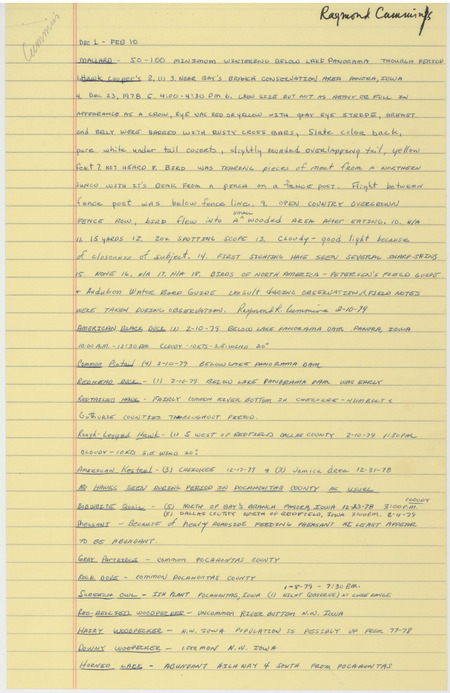 Raymond Cummings
Cummins
DEC 1 - FEB 10
MALLARD - 50-100 MINIMUM WINTERING BELOW LAKE PANORAMA THOUGH PERIOD
1. HAWK COOPER'S 2. (1) 3. NEAR BAY'S BRANCH CONSERVATION AREA PANORA, IOWA
4. DEC 23, 1978 5. 4:00-4:30 PM 6. CROW SIZE BUT NOT AS HEAVY OR FULL IN
APPEARANCE AS A CROW, EYE WAS RED OR YELLOW WITH GRAY EYE STRIPE, BREAST
AND BELLY WERE BARRED WITH RUSTY CROSS BARS, Slate color back,
pure white under tail coverts, slightly rounded overlapping tail, yellow
feet 7. NOT HEARD 8. BIRD WAS TEARING pieces of meat from a NORTHERN
JUNCO WITH IT'S BEAK FROM A PERCH ON A FENCE POST. Flight between
fence post was below fence line. 9. OPEN COUNTRY OVERGROWN
FENCE ROW, bird flew into A SMALL WOODED AREA AFTER EATING. 10. N/A
11. 15 YARDS 12. 20X SPOTTING SCOPE 13. Cloudy - good light because
of closeness of subject. 14. FIRST SIGHTING HAVE SEEN SEVERAL SHARP-SHINS
15. NONE 16. N/A 17. N/A 18. BIRDS OF NORTH AMERICA - PETERSON'S FIELD GUIDE
+ Audubon Water Bird Guide DURING OBSERVATION & FIELD NOTES
WERE TAKEN DURING OBSERVATION. Raymond L. Cummins 2-10-79
AMERICAN BLACK DUCK (1) 2-10-79 BELOW LAKE PANORAMA DAM PANORA, IOWA
10:00 A.M. - 12:30 PM CLOUDY - 10KTS - S.E. WIND 20°
COMMON PINTAIL (4) 2-10-79 BELOW LAKE PANORAMA DAM
REDHEAD DUCK - (1) 2-10-79 BELOW LAKE PANORAMA DAM WAS EARLY
RED TAILED HAWK - FAIRLY COMMON RIVER BOTTOM IN CHEROKEE - HUMBOLT &
GUTHRIE COUNTIES THROUGHOUT PERIOD.
Rough-Legged Hawk - (1) 5 WEST OF REDFIELD DALLAS COUNTY 2-10-79 1:30PM
CLOUDY - 10KTS S.E. WIND 20°
AMERICAN KESTREL - (3) CHEROKEE 12-17-79 & (2) Jamica Area 12-31-78
NO HAWKS SEEN DURING PERIOD IN POCAHONTAS COUNTY AS USUAL
BOBWHITE QUAIL - (5) NORTH OF BAY'S BRANCH PANORA, IOWA 12-23-78 3:00 P.M. CLOUDY
(8) DALLAS COUNTY NORTH OF REDFIELD, IOWA 3:00 P.M. 2-4-79
PHEASANT - BECAUSE OF heavy ROADSIDE FEEDING PHEASANT AT LEAST APPEAR
TO BE ABUNDANT.
GRAY PARTRIDGE - COMMON POCAHONTAS COUNTY
ROCK DOVE - COMMON POCAHONTAS COUNTY
SCREECH OWL - ISH PLANT POCAHONTAS, IOWA (1) NIGHT (OBSERVE) AT CLOSE RANGE 1-8-79 - 7:30 P.M.
RED-BELLIED WOODPECKER - UNCOMMON RIVER BOTTOM N.W. IOWA
HAIRY WOODPECKER - N.W. IOWA POPULATION IS POSSIBLY UP FROM 77-78
DOWNY WOODPECKER - COMMON N.W. IOWA
HORNED LARK - ABUNDANT HIGHWAY 4 SOUTH FROM POCAHONTAS